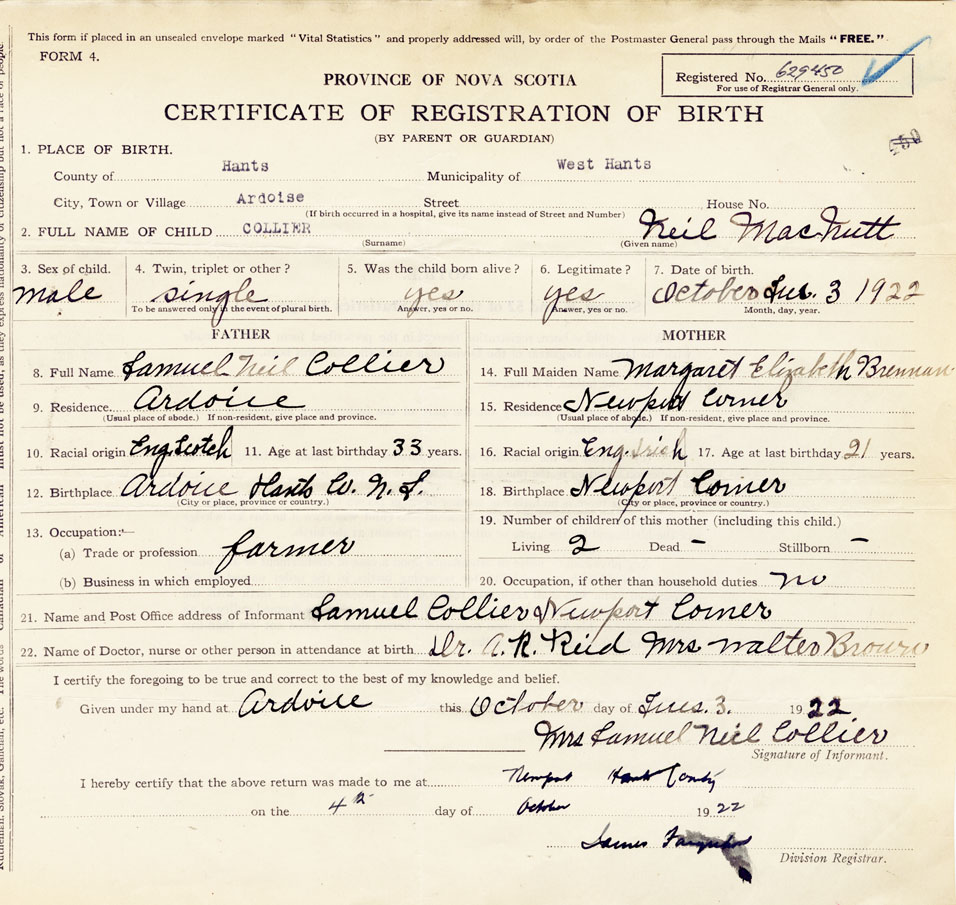 This form if placed in an unsealed envelope marked "Vital Statistics" and properly addressed will, by order of the Postmaster General pass through the Mails "FREE."
FORM 4.
PROVINCE OF NOVA SCOTIA
Registered No. 629450
For use of Registrar General only.
CERTIFICATE OF REGISTRATION OF BIRTH
(BY PARENT OR GUARDIAN)
1. PLACE OF BIRTH.
County of Hants Municipality of West Hants
City, Town or Village Ardoise Street House No.
(If birth occurred in a hospital, give its name instead of Street and Number)
2. FULL NAME OF CHILD COLLIER Neil MacNutt
(Surname) (Given name)
3. Sex of child. 4. Twin, triplet or other? 5. Was the child born alive? 6. Legitimate? 7. Date of birth.
male single yes yes October Tues. 3 1922
To be answered only in the event of plural birth. Answer, yes or no. Answer, yes or no. Month, day, year.
FATHER MOTHER
8. Full Name Samuel Neil Collier 14. Full Maiden Name Margaret Elizabeth Brennan
9. Residence Ardoice 15. Residence Newport Corner
(Usual place of abode.) If non-resident, give place and province. (Usual place of abode.) If non-resident, give place and province.
10. Racial origin Eng. Scotch 11. Age at last birthday 33 years. 16. Racial origin Eng. Irish 17. Age at last birthday 21 years.
12. Birthplace Ardoice Hants W. N. S. 18. Birthplace Newport Corner
(City or place, province or country.) (City or place, province or country.)
13. Occupation:— 19. Number of children of this mother (including this child.)
(a) Trade or profession farmer Living 2 Dead - Stillborn -
(b) Business in which employed 20. Occupation, if other than household duties no
21. Name and Post Office address of Informant Samuel Collier Newport Corner
22. Name of Doctor, nurse or other person in attendance at birth Dr. A. R. Reid Mrs Walter Brown
I certify the foregoing to be true and correct to the best of my knowledge and belief.
Given under my hand at Ardoice this October day of Tues. 3. 1922
Mrs Samuel Neil Collier
Signature of Informant.
I hereby certify that the above return was made to me at Newport Hants County
on the 4th day of October 1922
James
Division Registrar.